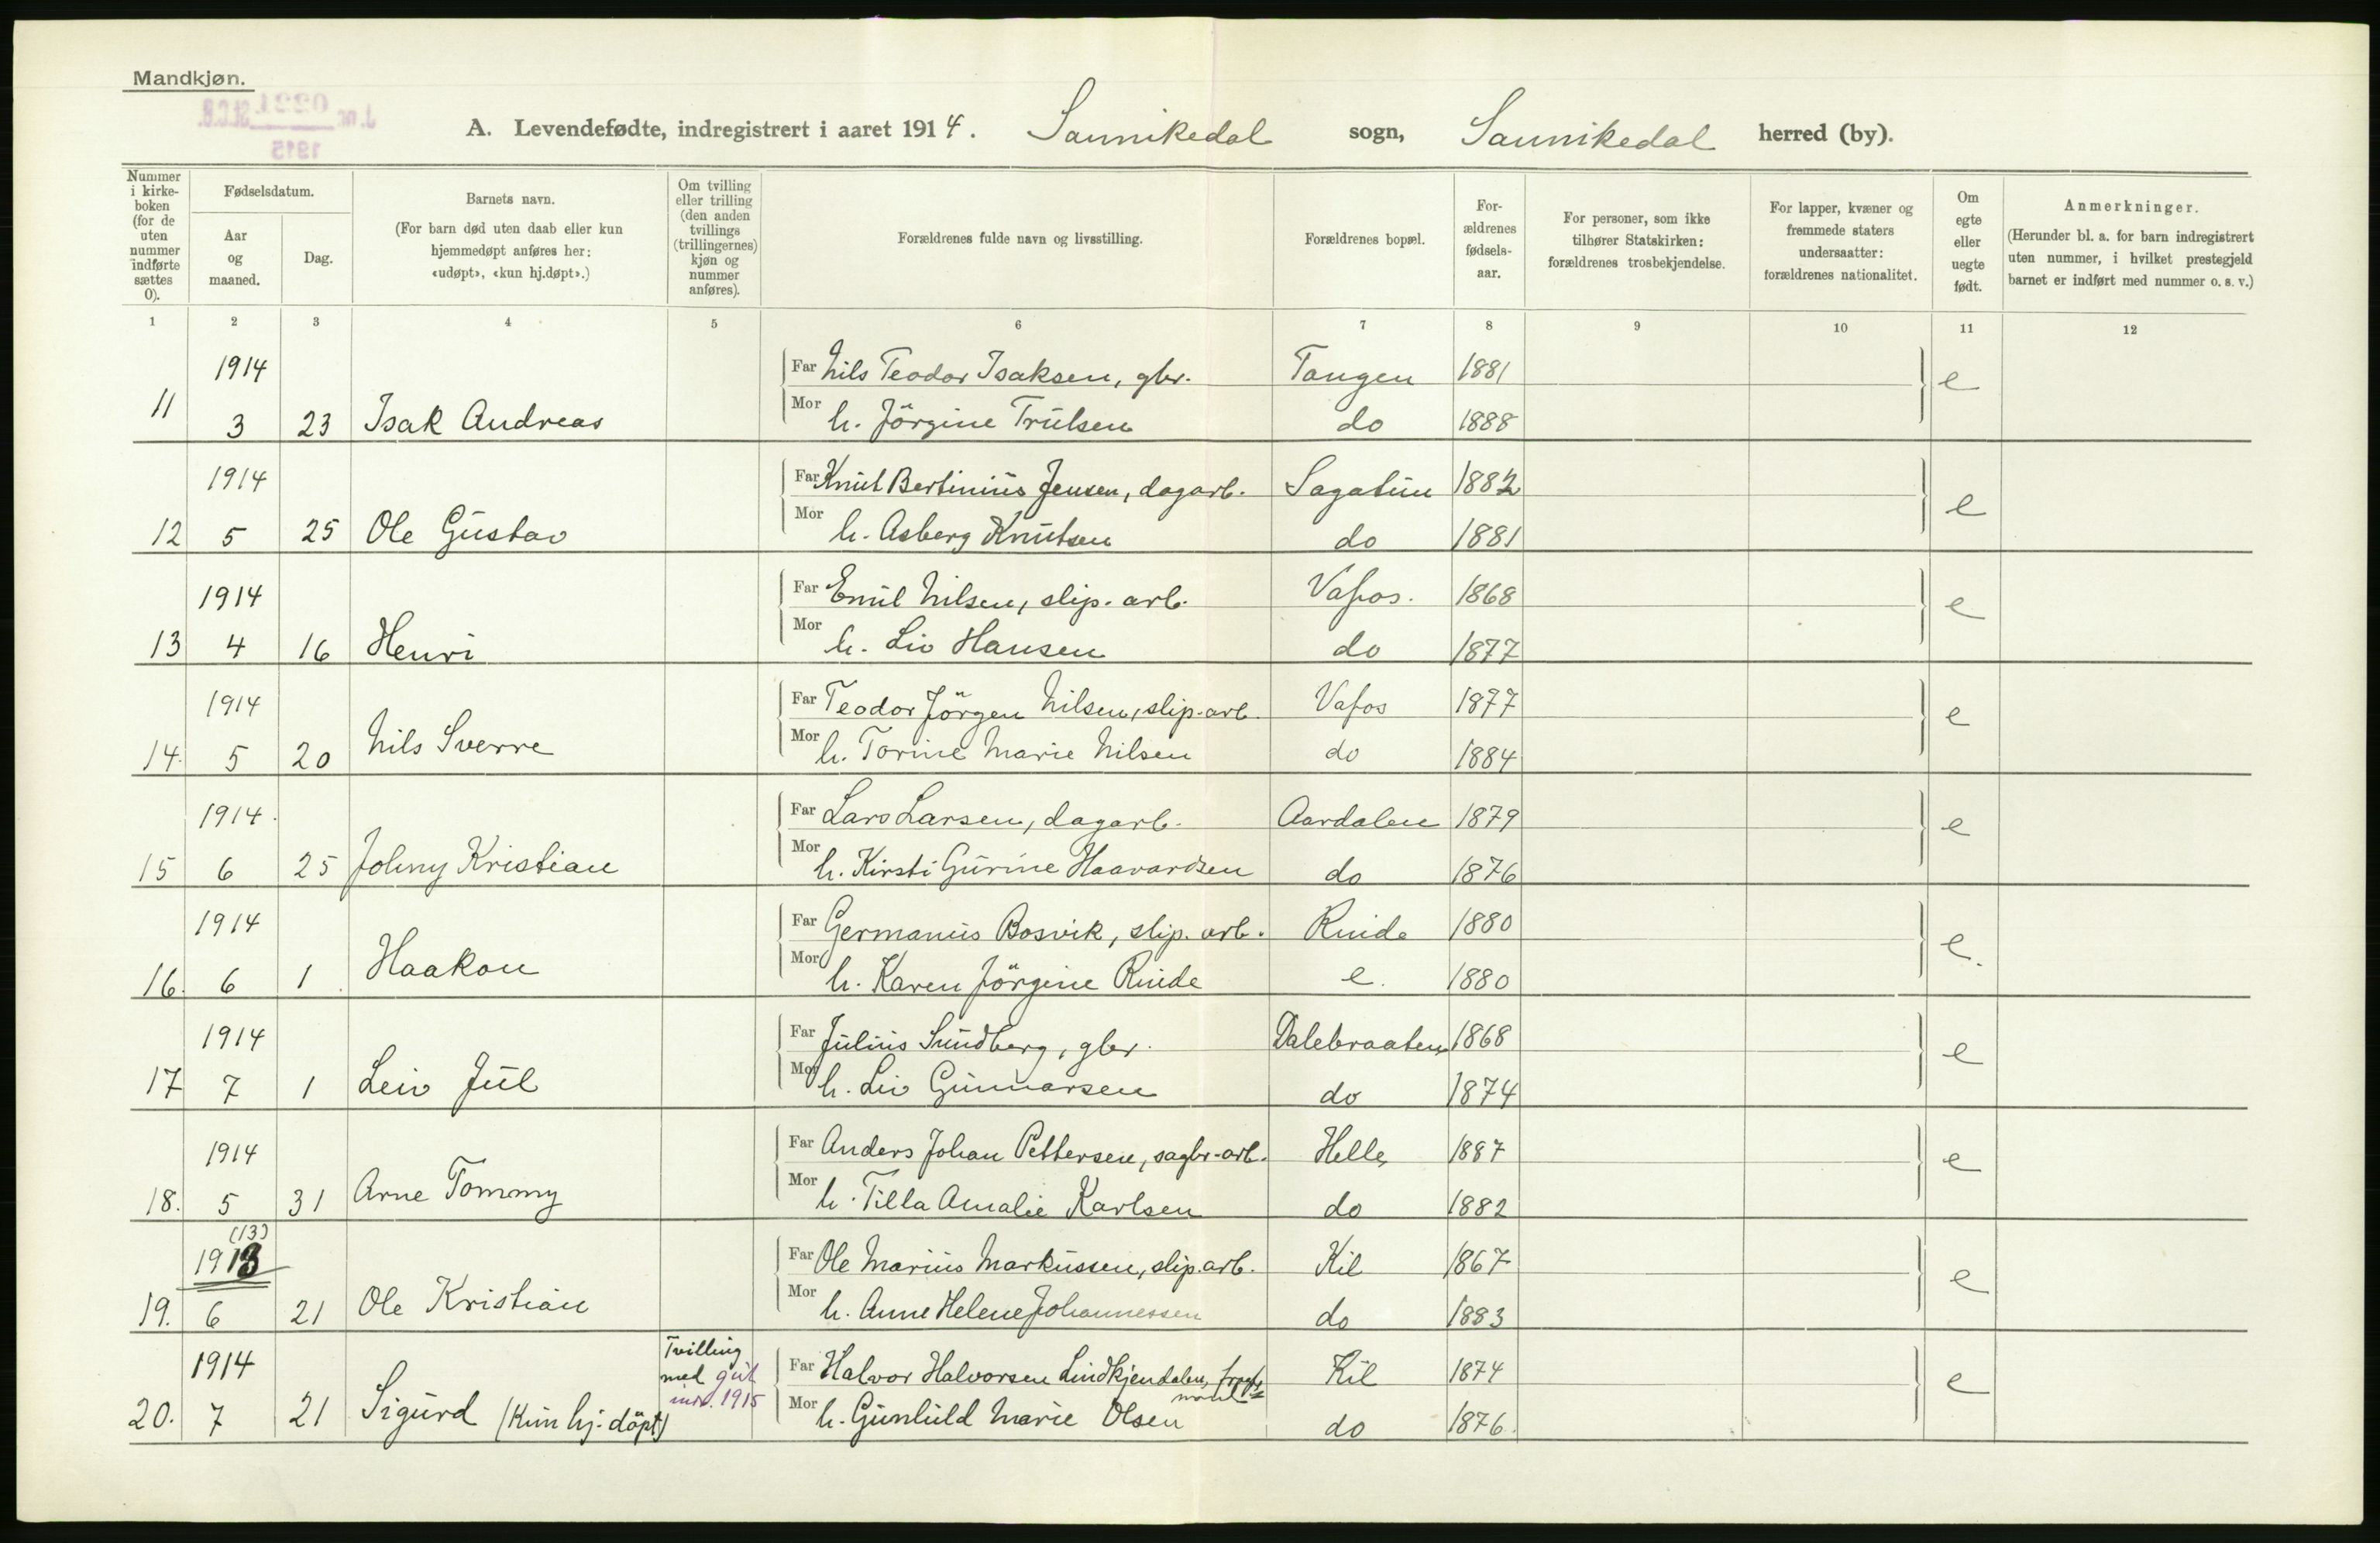 Mandkjøn.
J. nr. 0221 St.C.B.
1915
A. Levendefødte, indregistrert i aaret 1914. Sannikedal sogn, Sannikedal herred (by).
Nummer i kirkeboken (for de uten nummer indførte sættes 0).
Fødselsdatum.
Aar og maaned.
Dag.
Barnets navn.
(For barn død uten daab eller kun hjemmedøpt anføres her: «udøpt», «kun hj.døpt».)
Om tvilling eller trilling (den anden tvillings (trillingernes) kjøn og nummer anføres).
Forældrenes fulde navn og livsstilling.
Forældrenes bopæl.
Forældrenes fødselsaar.
For personer, som ikke tilhører Statskirken: forældrenes trosbekjendelse.
For lapper, kvæner og fremmede staters undersaatter: forældrenes nationalitet.
Om egte eller uegte født.
Anmerkninger.
(Herunder bl. a. for barn indregistrert uten nummer, i hvilket prestegjeld barnet er indført med nummer o. s. v.)
1 2 3 4 5 6 7 8 9 10 11 12
1914 Far Nils Teodor Isaksen, gbr. Tangen 1881 e
11 3 23 Isak Andreas Mor h. Jörgine Trulsen do 1888
1914 Far Knut Bertinius Jensen, dagarb. Sagatun 1882 e
12 5 25 Ole Gustav Mor h. Asberg Knutsen do 1881
1914 Far Emil Nilsen, slip. arb. Vafos. 1868 e
13 4 16 Henri Mor h. Liv Hansen do 1877
1914 Far Teodor Jörgen Nilsen, slip. arb. Vafos 1877 e
14. 5 20 Nils Sverre Mor h. Torine Marie Nilsen do 1884
1914. Far Lars Larsen, dagarb. Aardalen 1879 e
15 6 25 Johny Kristian Mor h. Kirsti Gurine Haavardsen do 1876
1914 Far Germanius Bosvik, slip. arb. Rinde 1880 e.
16. 6 1 Haakon Mor h. Karen Jörgine Rinde e. 1880
1914 Far Julius Sundberg, gbr. Dalebraaten 1868 e
17 7 1 Leiv Jul Mor h. Liv Gunnarsen do 1874
1914 Far Anders Johan Pettersen, sagbr-arb. Helle 1887 e
18. 5 31 Arne Tommy Mor h. Tilla Amalie Karlsen do 1882
(13)
1913 Far Ole Marius Markussen, slip. arb. Kil 1867 e
19. 6 21 Ole Kristian Mor h. Anne Helene Johannessen do 1883
1914 Tvilling med gut Far Halvor Halvorsen Lindkjendalen, Kil 1874 e
20. 7 21 Sigurd (Kun hj. döpt) 1915 Mor h. Gunhild Marie Olsen do 1876.